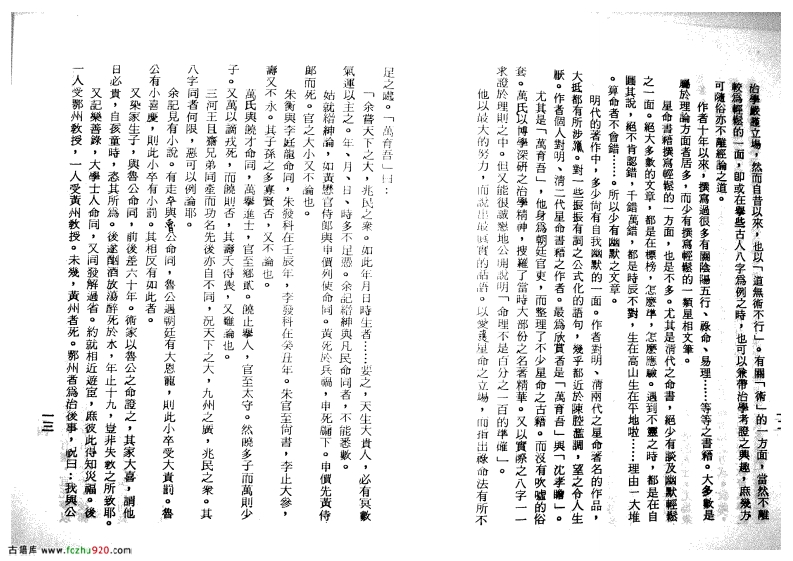 治學嚴謹立場，然而自昔以來，也以「道無術不行」。有關「術」的一方面，當然不離
較為輕鬆的一面，即或在舉些古人八字為例之時，也可以兼帶治學考證之興趣，庶幾方
可隨俗亦不離經論之道。
作者十年以來，撰寫過很多有關陰陽五行、祿命、易理……等等之書籍。大多數是
屬於理論方面者居多，而少有撰寫輕鬆的一類星相文筆。
星命書籍撰寫輕鬆的一方面，也是不多。尤其是清代之命書，絕少有談及幽默輕鬆
之一面。絕大多數的文章，都是在標榜，怎麼準，怎麼應驗。遇到不靈之時，都是在自
圓其說，絕不肯認錯，千錯萬錯，都是時辰不對，生在高山生在平地啦……理由一大堆
。算命者不會錯……。所以少有幽默之文章。
明代的著作中，多少尚有自我幽默的一面。作者對明、清兩代之星命著名的作品，
大抵都有所涉獵。對一些振振有詞之公式化的語句，幾乎都近於陳腔濫調，望之令人生
厭。作者個人對明、清二代星命書籍之作者。最為欣賞者是「萬育吾」與「沈孝瞻」。
尤其是「萬育吾」，他身為朝廷官吏，而整理了不少星命之古籍。而沒有吹噓的俗
套。萬氏以博學深研之治學精神，搜羅了當時大部份之名著精華。又以實際之八字一一
求證於理則之中。但又能很誠懇地公開說明「命理不是百分之一百的準確」。
他以最大的努力，而說出最眞實的話語。以愛護星命之立場，而指出祿命法有所不
足之處。「萬育吾」曰：
「余嘗天下之大，兆民之衆。如此年月日時生者……要之，天生大貴人，必有冥數
氣運以主之。年、月、日、時多不足憑。余記縉紳與凡民命同者，不能悉數。
姑就縉紳論，如黃懋官侍郎與申價列使命同。黃死於兵禍，申死牖下。申價先黃侍
郎而死。官之大小又不論也。
朱衡與李庭龍命同，朱發科在壬辰年，李發科在癸丑年。朱官至尙書，李止大參，
壽又不永。其子孫之多寡賢否，又不論也。
萬氏與饒才命同，萬舉進士，官至鄉貳。饒止擧人，官至太守。然饒多子而萬則少
子。又萬以謫戍死，而饒則否，其壽夭得喪，又難論也。
三河王且齋兄弟同產而功名先後亦自不同，況天下之大，九州之廣，兆民之衆。其
八字同者何限，惡可以例論耶。
余記見有小說。有走卒與魯公命同，魯公遇朝廷有大恩寵，則此小卒受大責罰。魯
公有小喜慶，則此小卒有小罰。其相反有如此者。
又染家生子，與魯公命同，前後差六十年。術家以魯公之命證之，其家大喜，謂他
日必貴，自孩童時，恣其所為。後遂酗酒放蕩醉死於水，年止十九，豈非失教之所致耶。
又記樂善錄，大學士人命同，又同發解過省。約就相近遊宦，庶彼此得知災福。後
一人受鄂州教授，一人受黃州教授。未幾，黃州者死。鄂州者為治後事，祝曰：我與公
一三
古籍库 www.fczhu920.com